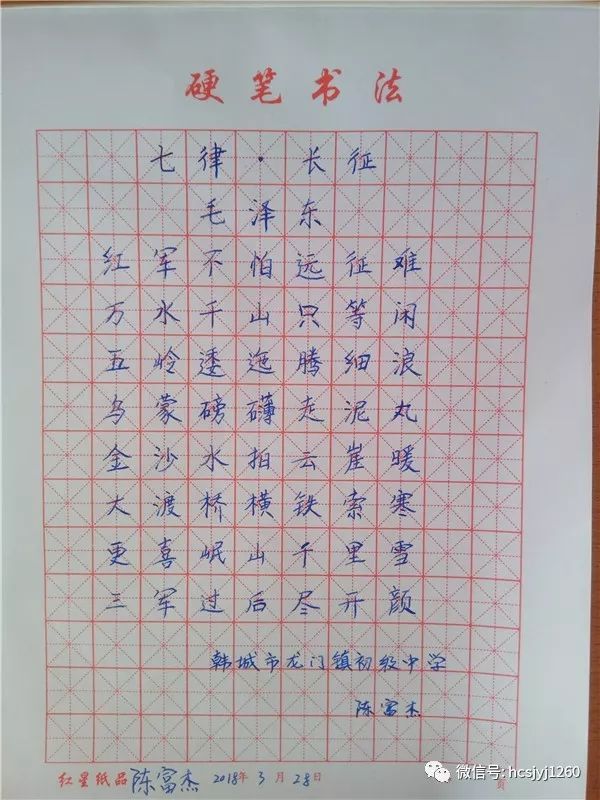 硬笔书法
七律·长征
毛泽东
红军不怕远征难
万水千山只等闲
五岭逶迤腾细浪
乌蒙磅礴走泥丸
金沙水拍云崖暖
大渡桥横铁索寒
更喜岷山千里雪
三军过后尽开颜
韩城市龙门镇初级中学
陈富杰
红星纸品 陈富杰 2018年3月28日 页
微信号: hcsjyj1260